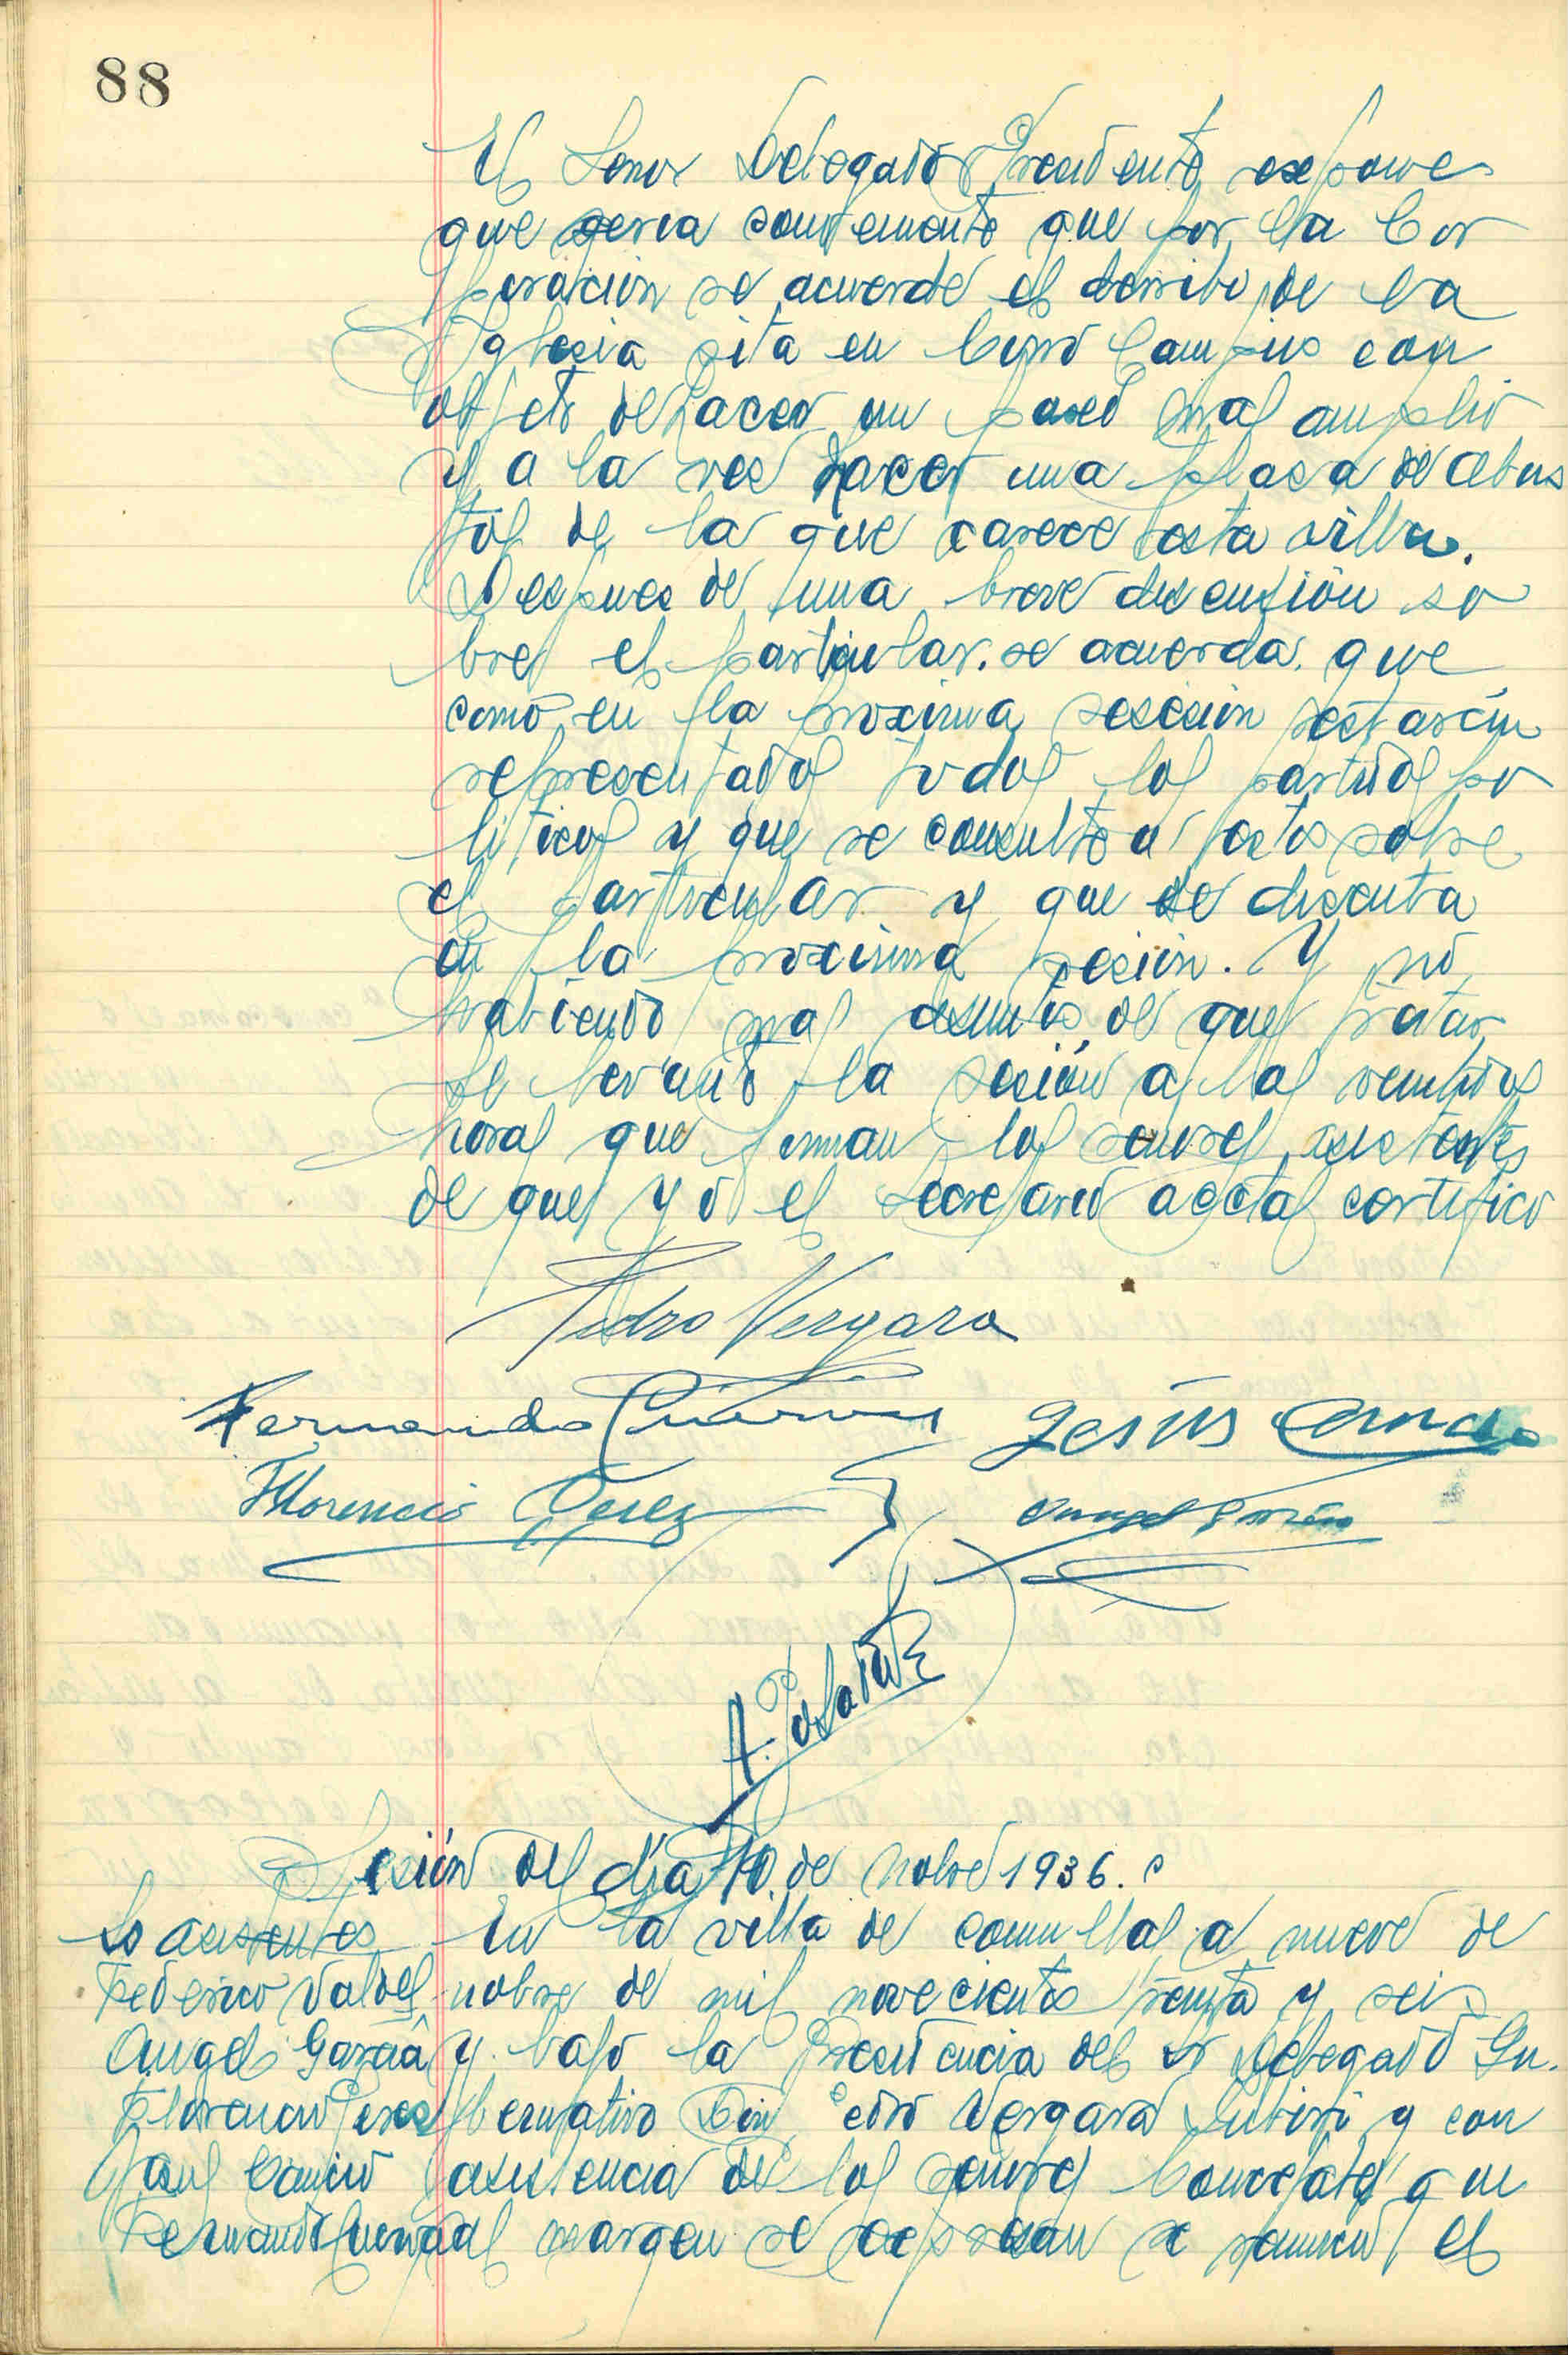 88
El Señor Delegado Presidente expone
que seria conveniente que por la Cor
poración se acuerde el derribo de la
Iglesia sita en Corro Campios con
objeto de hacer un paseo mas amplio
y a la vez hacer una plaza de abas
tos de la que carece esta villa.
Despues de una breve discusión so
bre el particular. se acuerda que
como en la proxima sesision estarán
representados todos los partidos po
liticos y que se consulte a estos sobre
el particular y que se discuta
en la proxima sesion. Y no
habiendo mas asuntos de que tratar
se levantó la sesión a las veintidos
horas que firman los señores asistentes
de que yo el secretario acctal certifico
Pedro Vergara
Fernando Jesús Cancio
Florencio Perez Angel
A.
Sesión del día 10 de Nobre 1936.
Ss asistentes
Federico Valdes
Angel Garcia
Florencio Perez
Jesus Cancio
Fernando
En la villa de Comillas a nueve de
nobre de mil novecientos treinta y seis
y bajo la Presidencia del sr Delegado Gu.
bernativo Don Pedro Vergara y con
asistencia de los señores Concejales que
al margen se expresan se reunió el